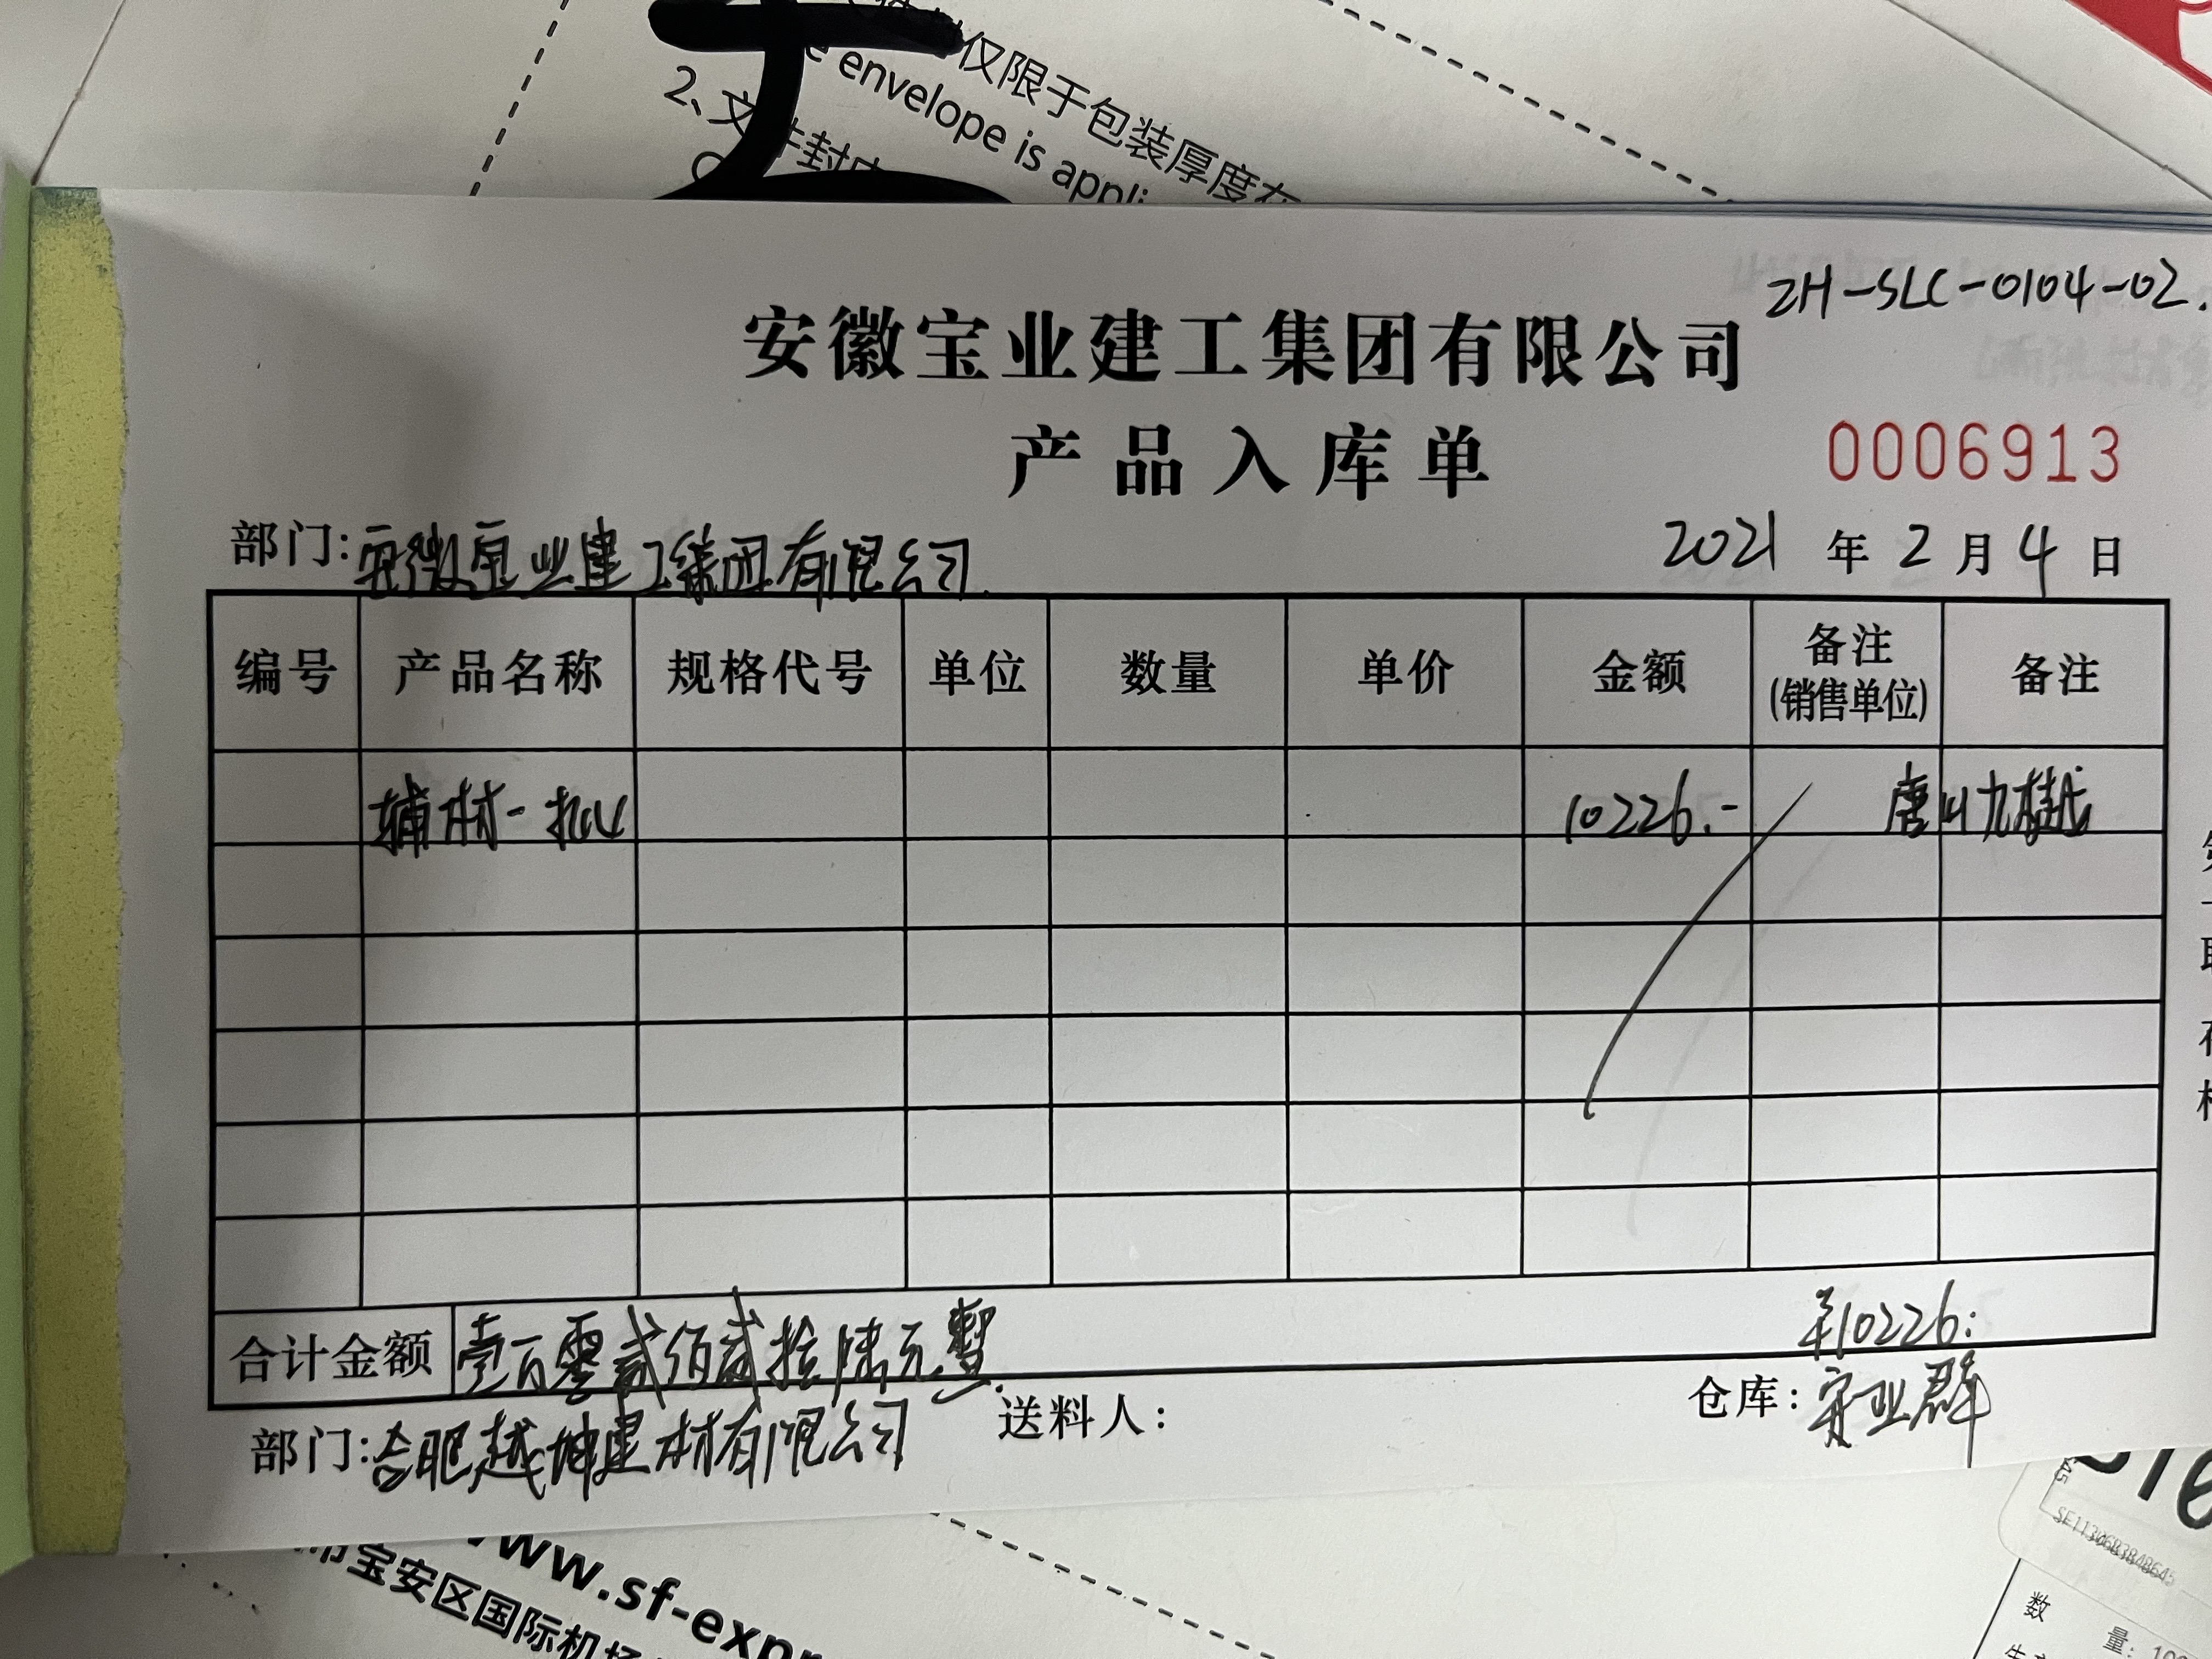 仅限于包装厚度在
e envelope is appli
2、文件封内
ZH-SLC-0104-02.
安徽宝业建工集团有限公司
产品入库单
0006913
部门:安徽宝业建工集团有限公司. 2021 年 2 月 4 日
编号 产品名称 规格代号 单位 数量 单价 金额 备注(销售单位) 备注
辅材一批 10226.- 唐山九樾
合计金额 壹万零贰佰贰拾陆元整. ¥10226:
部门:合肥越坤建材有限公司 送料人: 仓库:宋业群
www.sf-expr
市宝安区国际机场
SF1130683848645
数
量: 100